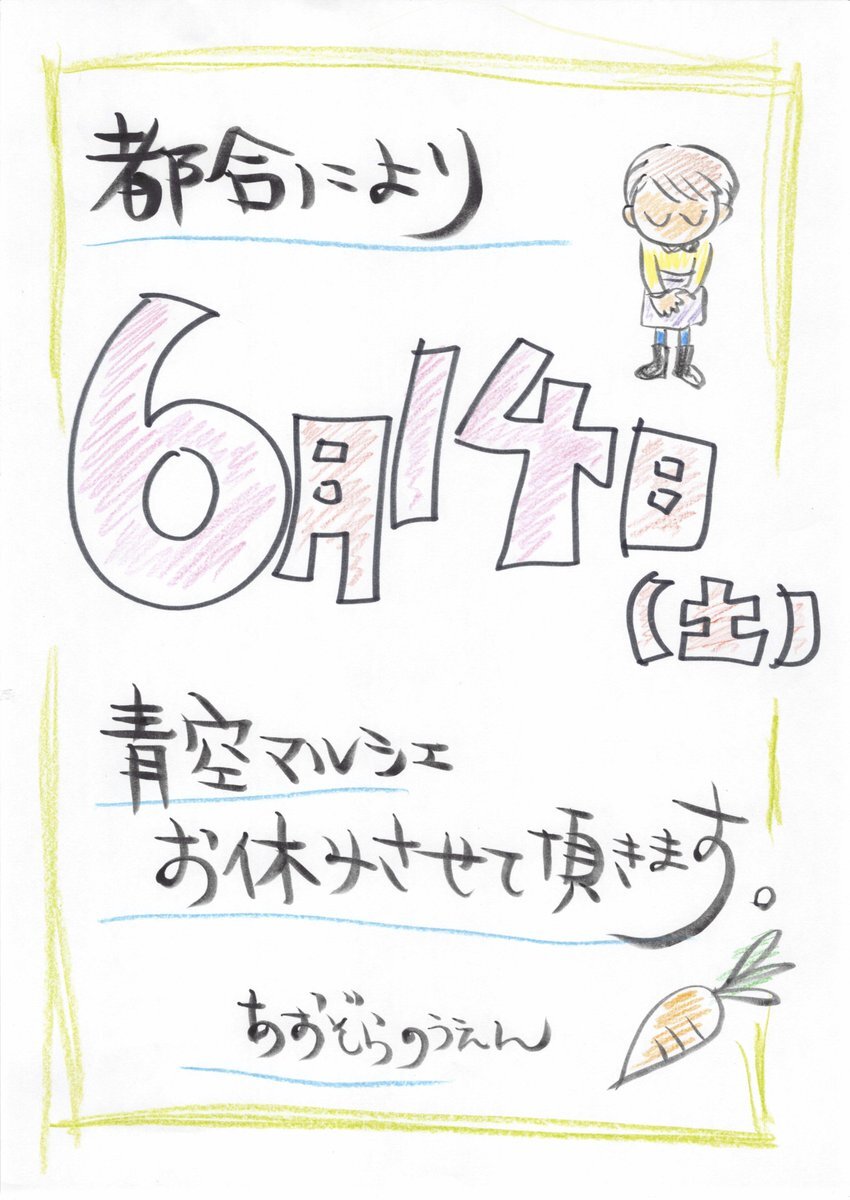 都合により
6月14日
(土)
青空マルシェ
お休みさせて頂きます。
あおぞらのうえん